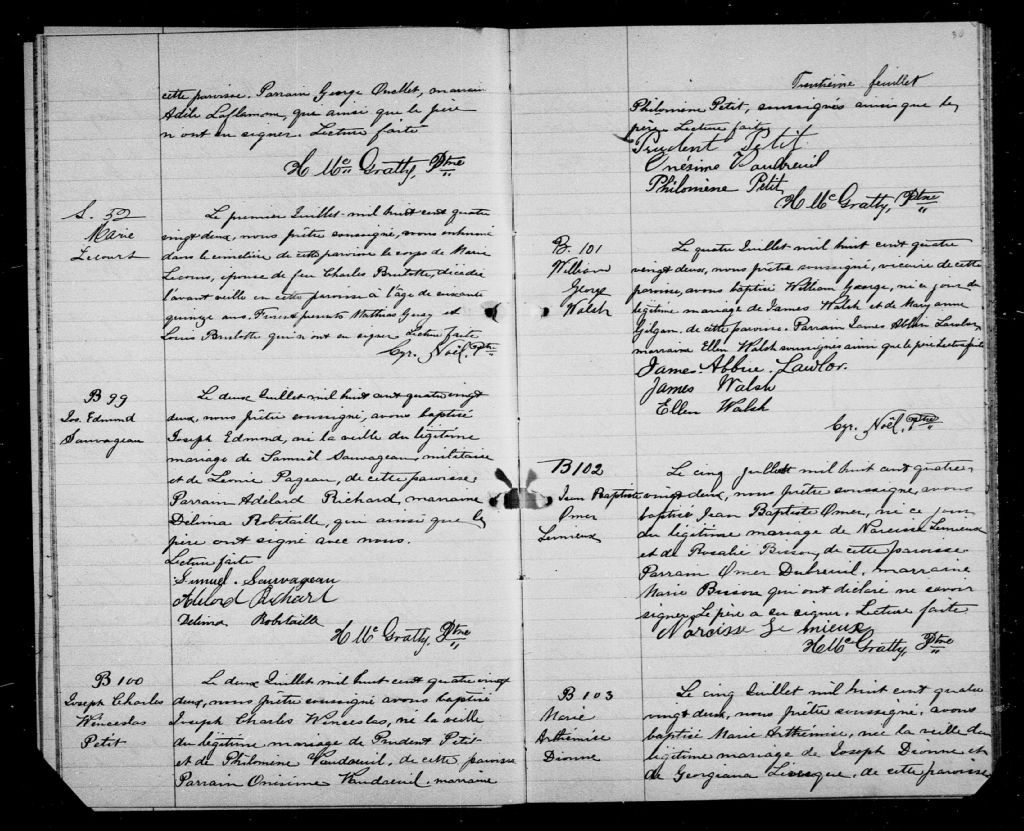 cette paroisse. Parrain George Ouellet, marraine
Adile Laflamme, que ainsi que le père
n'ont su signer. Lecture faite
H. McGratty, Ptre
S. 52
Marie
Lecours
Le premier Juillet mil huit cent quatre
vingt deux, nous prêtre soussigné, avons inhumé
dans le cimetière de cette paroisse le corps de Marie
Lecours, épouse de feu Charles Brulotte, décédée
l'avant veille en cette paroisse à l'âge de soixante
quinze ans. Furent présents Mathias Guay et
Louis Brulotte qui n'ont su signer. Lecture faite
Cyr. Noël, Ptre
B 99
Jos. Edmund
Sauvageau
Le deux Juillet mil huit cent quatre vingt
deux, nous prêtre soussigné, avons baptisé
Joseph Edmond, né la veille du légitime
mariage de Samuël Sauvageau, militaire
et de Léonie Pageau, de cette paroisse.
Parrain Adelard Richard, marraine
Delima Robitaille, qui ainsi que le
père ont signé avec nous.
Lecture faite
Samuel. Sauvageau
Adelard Richard
Delima Robitaille
H McGratty, Ptre
B 100
Joseph Charles
Winceslas
Petit
Le deux Juillet mil huit cent quatre vingt
deux, nous prêtre soussigné avons baptisé
Joseph Charles Winceslas, né la veille
du légitime mariage de Prudent Petit
et de Philomène Vaudreuil, de cette paroisse
Parrain Onésime Vaudreuil, marraine
30
Trentième feuillet
Philomène Petit, soussignés ainsi que le
père. Lecture faite
Prudent Petit
Onésime Vaudreuil
Philomène Petit
H McGratty, Ptre
B. 101
William
George
Walsh
Le quatre Juillet mil huit cent quatre
vingt deux, nous prêtre soussigné, vicaire de cette
paroisse, avons baptisé William George, né ce jour du
légitime mariage de James Walsh et de Mary Anne
Gilgan, de cette paroisse. Parrain James Abbue Lawlor
marraine Ellen Walsh soussignés ainsi que le père. Lecture faite
James Abbue. Lawlor.
James Walsh
Ellen Walsh
Cyr. Noël, Ptre
B 102
Jean Baptiste
Omer
Lemieux
Le cinq juillet mil huit cent quatre
vingt deux, nous prêtre soussigné, avons
baptisé Jean Baptiste Omer, né ce jour
du légitime mariage de Narcisse Lemieux
et de Rosalie Bisson, de cette paroisse.
Parrain Omer Dubreuil, marraine
Marie Bisson qui ont déclaré ne savoir
signer. Le père a su signer. Lecture faite
Narcisse Le mieux
H McGratty, Ptre
B 103
Marie
Arthémise
Dionne
Le cinq Juillet mil huit cent quatre
vingt deux, nous prêtre soussigné, avons
baptisé Marie Arthémise, née la veille du
légitime mariage de Joseph Dionne et
de Georgiana Levesque, de cette paroisse